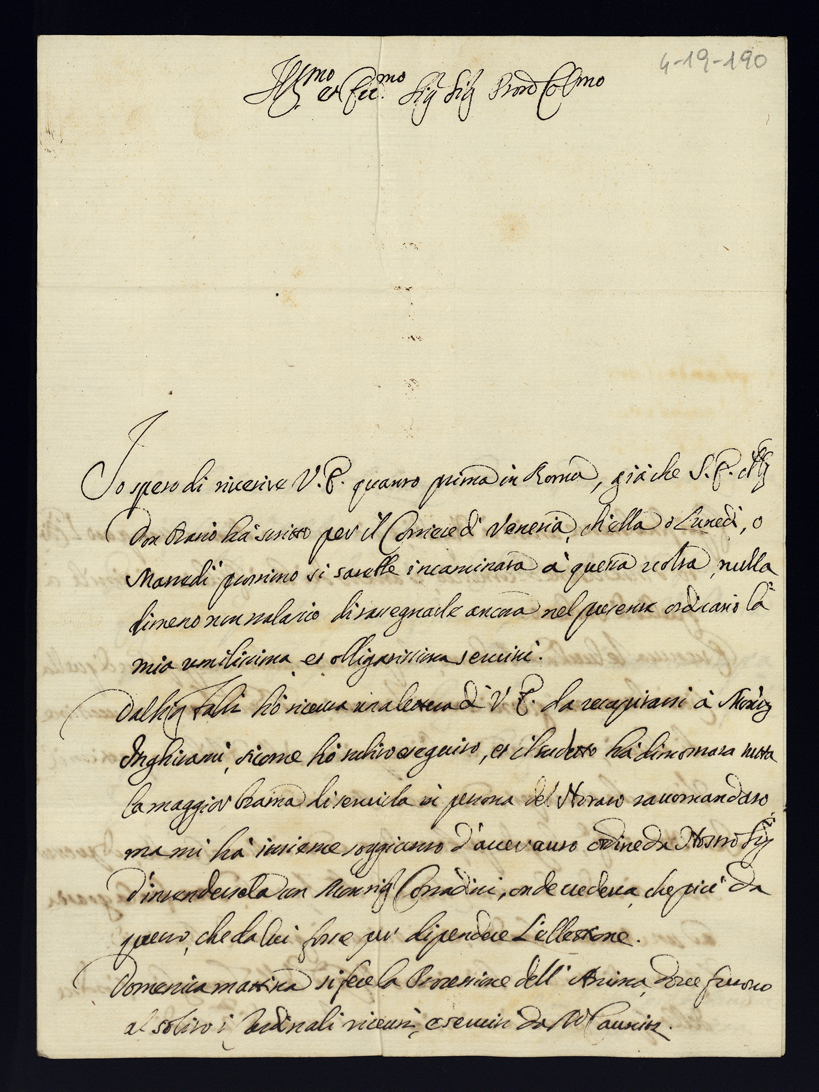 4-19-190
Ill.mo et Ecc.mo Sig Sig Pron Col.mo
Io spero di riverire V. E. quanto prima in Roma, già che S. E. il Sig
Don Livio hà scritto per il Corriere di Venezia, ch'ella o Lunedì, o
Martedì prossimo si sarebbe incaminata à questa volta, nulla
dimeno non tralascio di rassegnarle ancora nel presente ordinario la
mia umilissima et obligatissima servitù.
Dal Sig Falli hò ricevuta una lettera di V. E. da recapitarsi à Mons.
Inghirami, sicome hò subito eseguito, et il sudetto hà dimostrata tutta
la maggior brama di servirla in persona del Notaro raccomandato,
ma mi hà insieme soggiunto d'aver auto ordine da Nostro Sig.
d'intendersela con Monsig Corradini, onde credeva, che più da
questo, che da lui fosse per dipendere l'ellezione.
Domenica mattina si fece la Processione dell' Anima, dove furono
al solito i Cardinali ricevuti, e serviti da M Caunitz.